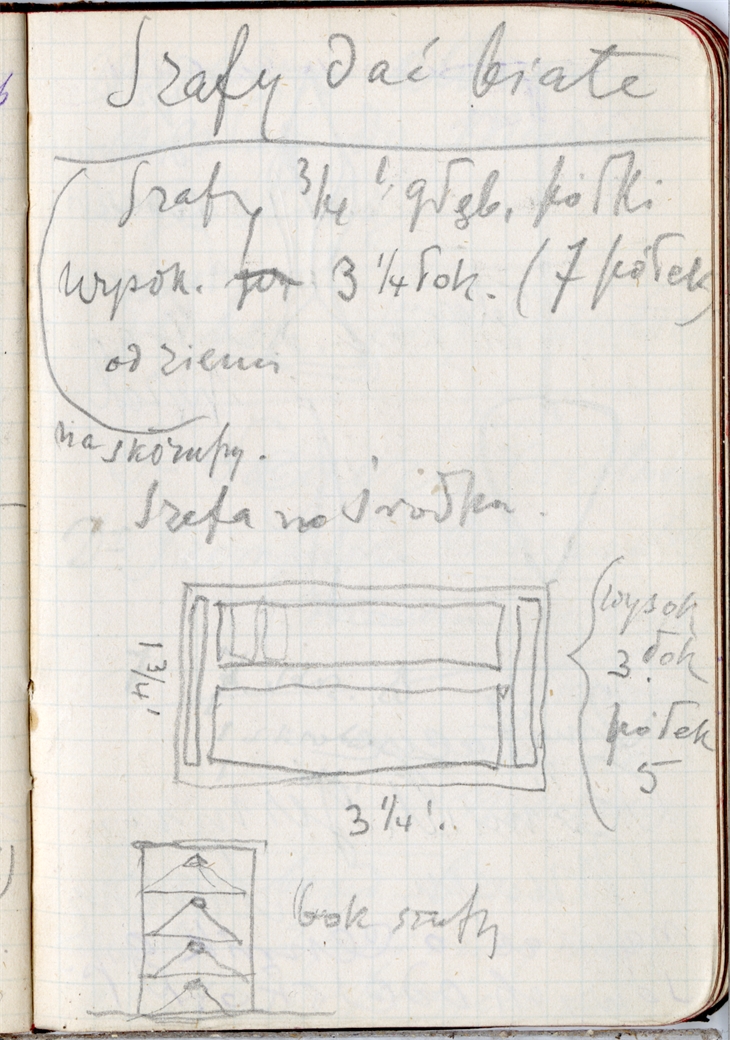 Szafy dać białe
Szafy 3/4 ' głęb. półki
wysok. 3 1/4 łok. (7 półek)
od ziemi
na skorupy.
Szafa na środku.
1 3/4 '
wysok
3. łok
półek
5
3 1/4 '.
bok szafy